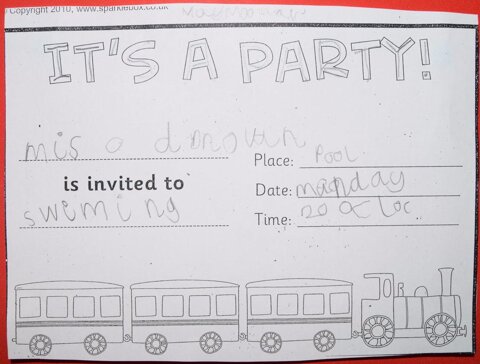 Copyright 2010, www.sparklebox.co.uk
IT'S A PARTY!
mis o donovan
is invited to
swiming
Place: Pool
Date: manday
Time: 20 c loc